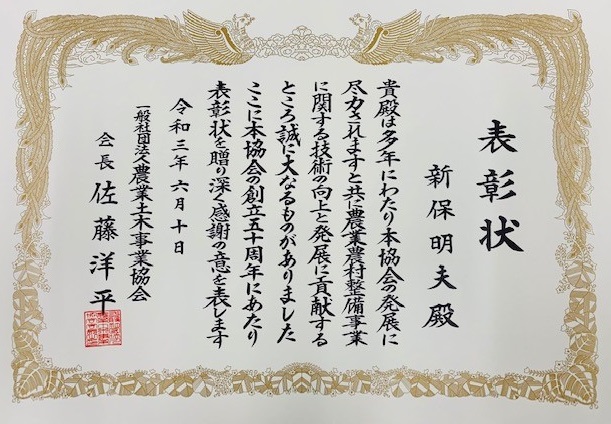 表彰状
新保明夫殿
貴殿は多年にわたり本協会の発展に
尽力されますと共に農業農村整備事業
に関する技術の向上と発展に貢献する
ところ誠に大なるものがありました
ここに本協会の創立五十周年にあたり
表彰状を贈り深く感謝の意を表します
令和三年六月十日
一般社団法人農業土木事業協会
会長 佐藤洋平